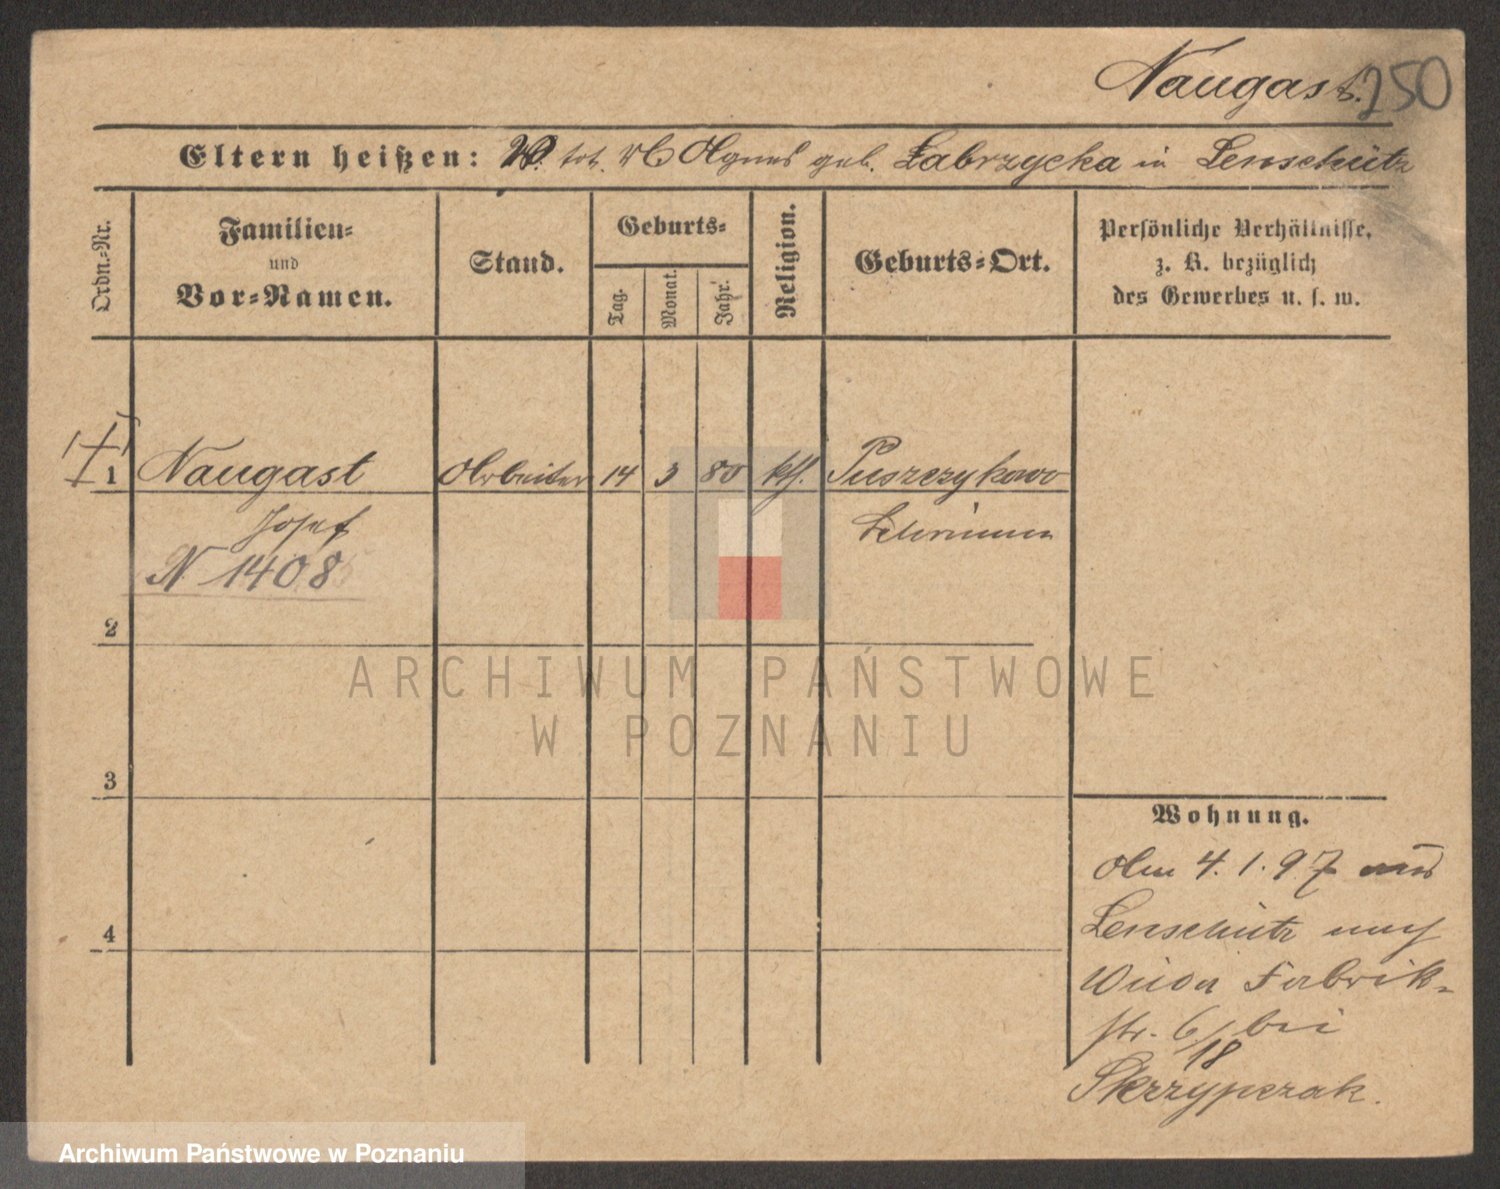 Naugast. 250
Eltern heißen: V. tot. M Agnes geb. Labrzycka in Lenschütz
Ordn.-Nr.
Familien-
und
Vor-Namen.
Stand.
Geburts-
Tag.
Monat.
Jahr.
Religion.
Geburts-Ort.
Persönliche Verhältnisse,
z. B. bezüglich
des Gewerbes u. s. w.
1 Naugast Arbeiter 14 3 80 kth. Puszczykowo
Josef Schrimm
N 1408
2
3
4
Wohnung.
Am 4.1.97 aus
Lenschütz nach
Wilda Fabrik-
str. 6/18 bei
Skrzypczak.
ARCHIWUM PAŃSTWOWE
W POZNANIU
Archiwum Państwowe w Poznaniu